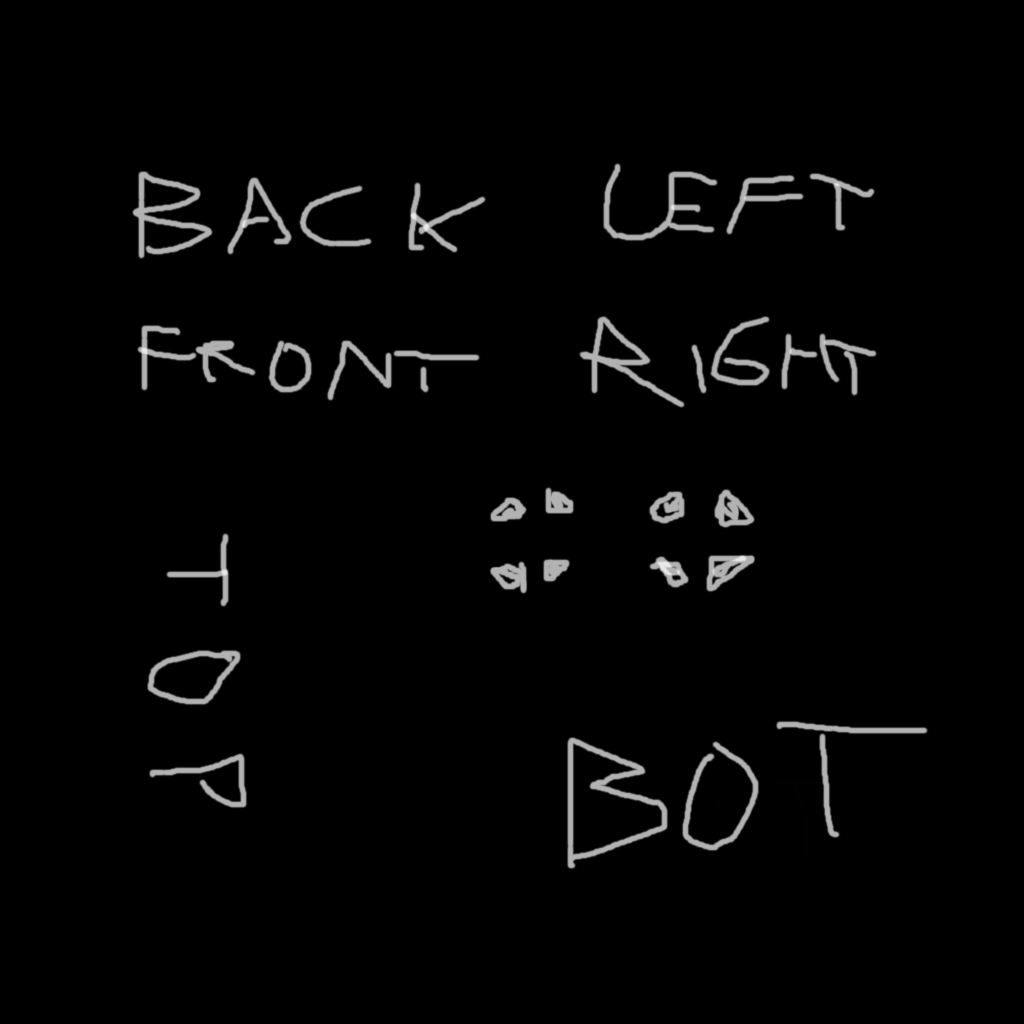 BACK LEFT
FRONT RIGHT
TOP
BOT